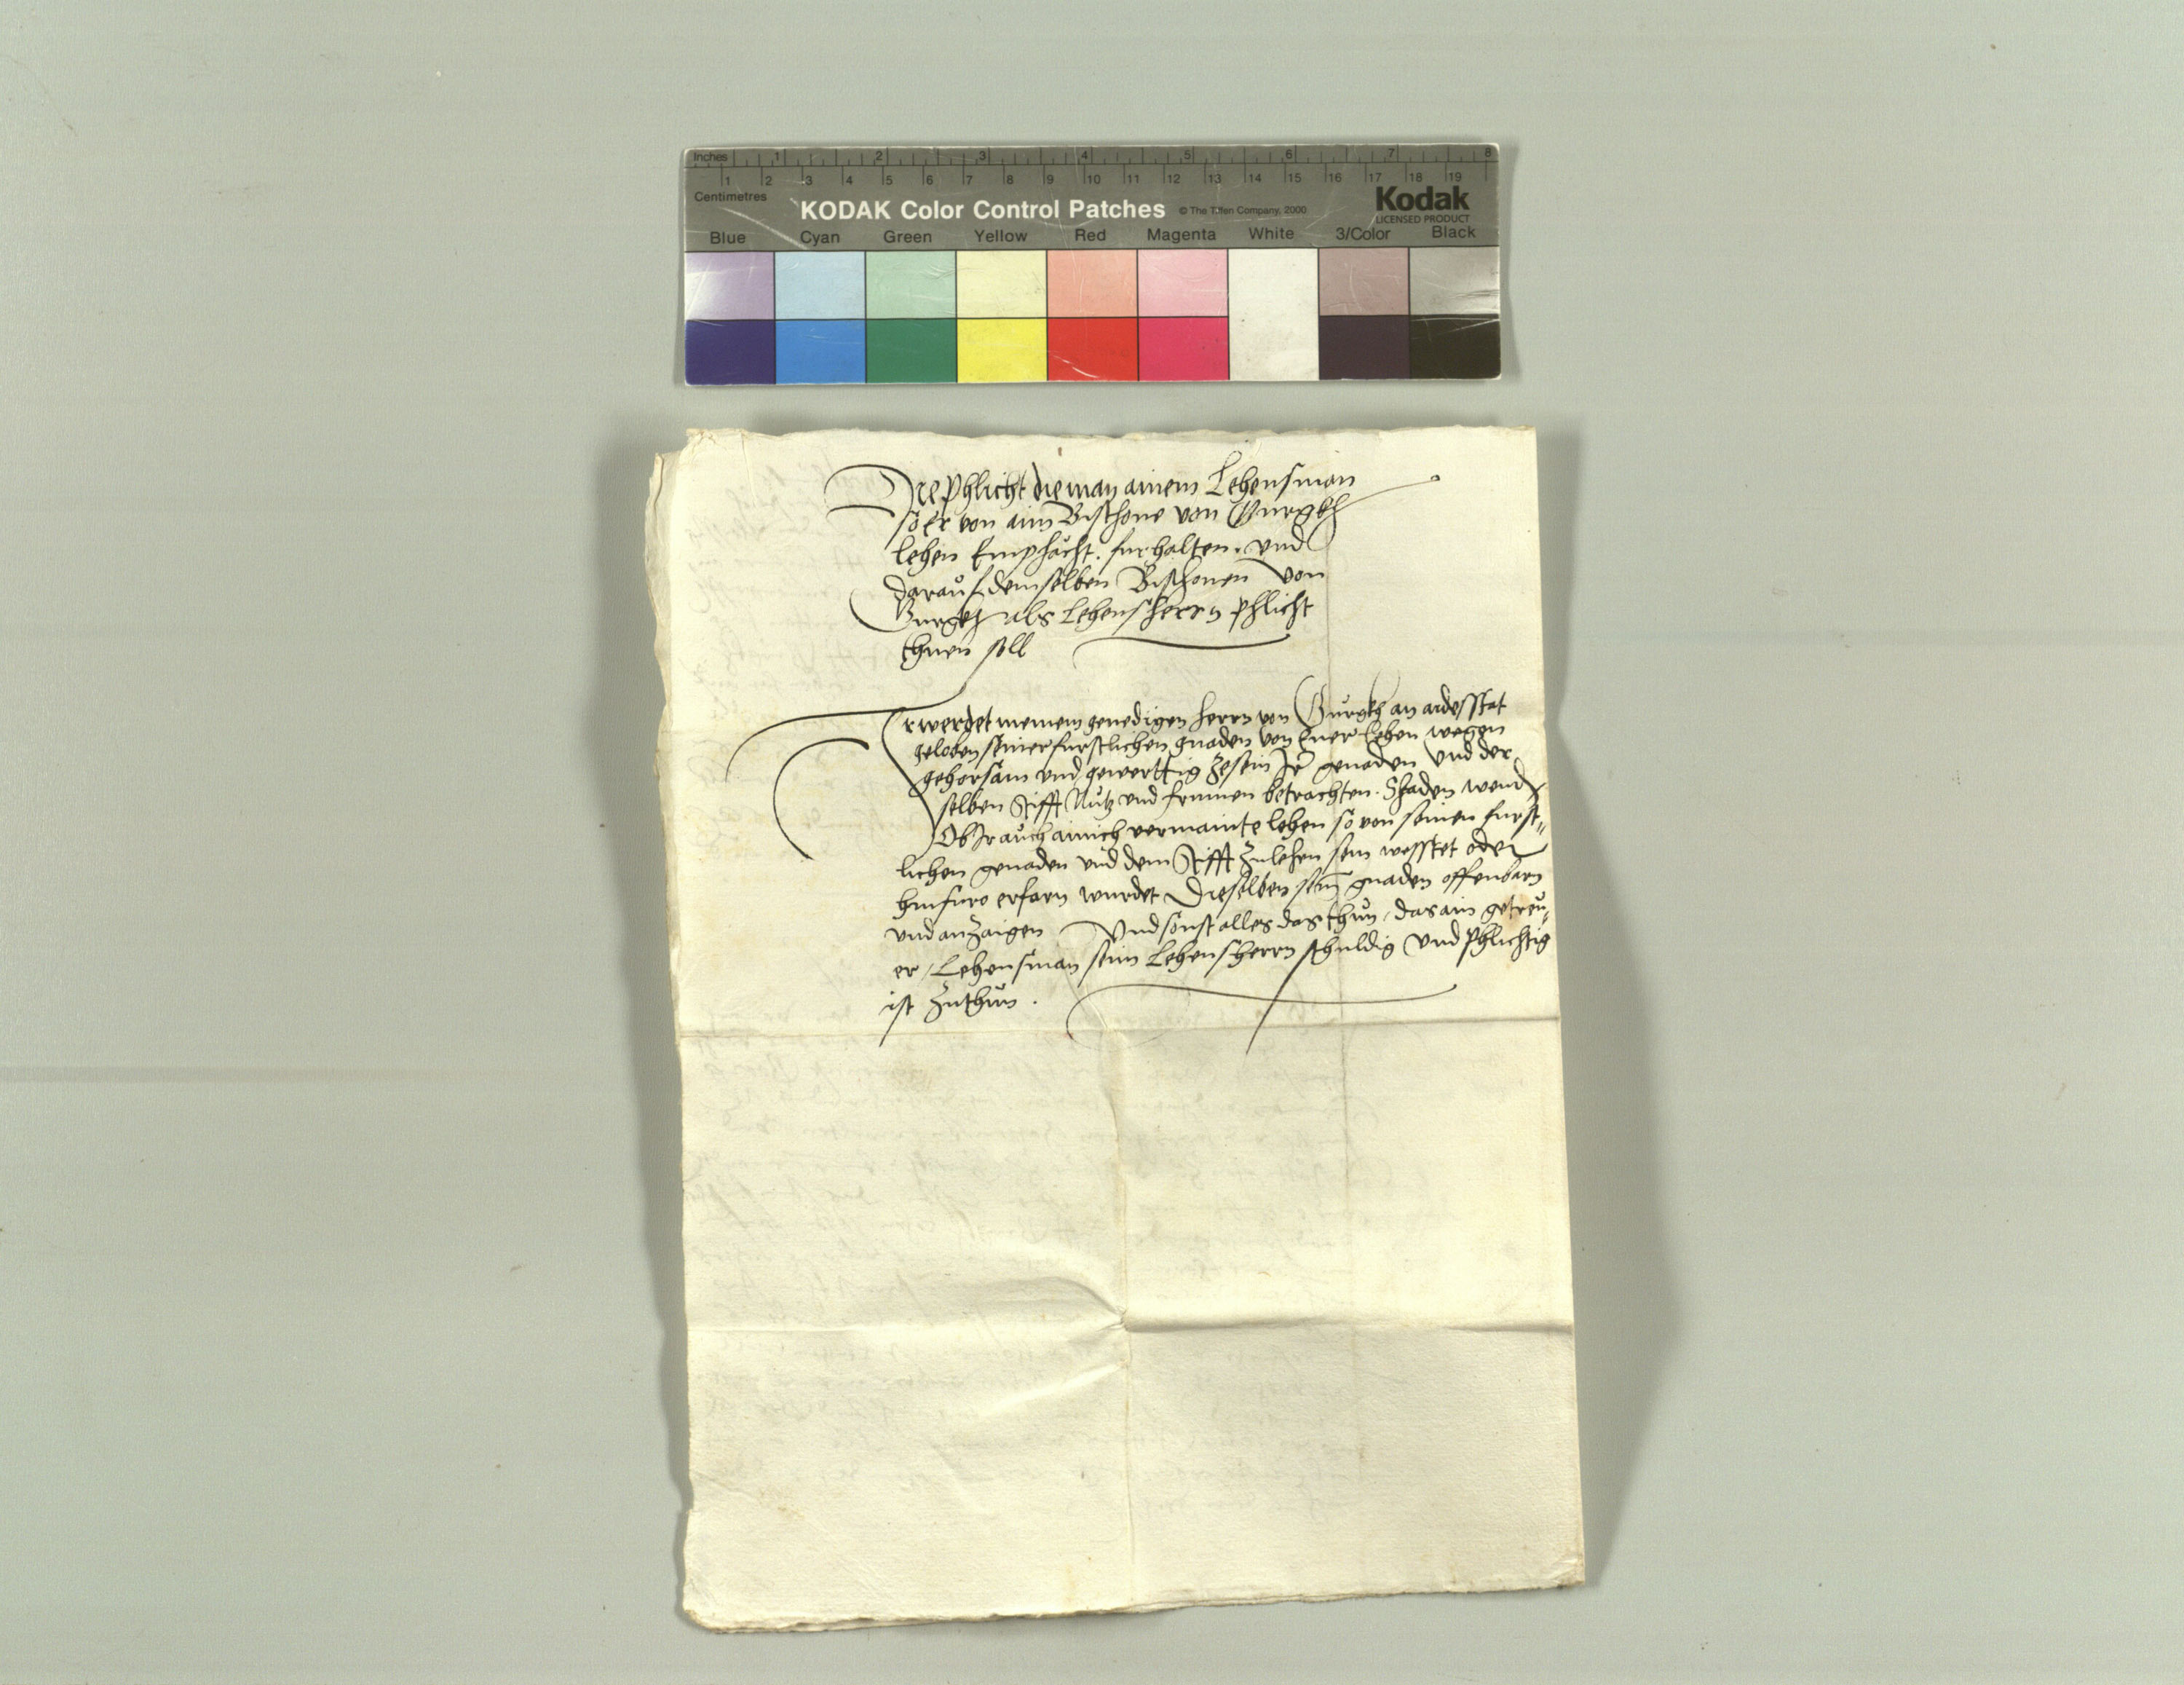 Inches 1 2 3 4 5 6 7 8
1 2 3 4 5 6 7 8 9 10 11 12 13 14 15 16 17 18 19
Centimetres
KODAK Color Control Patches © The Tiffen Company, 2000 Kodak
LICENSED PRODUCT
Blue Cyan Green Yellow Red Magenta White 3/Color Black
Die Phlicht die man ainem Lehensman
so er von aim Bischove von Gurgkh
lehen Empfächt. furhalten. und
darauf demselben Bischoven von
Gurgkh als Lehensherrn phlicht
thuen soll
Ir werdet meinem genedigen herrn von Gurgkh an aides stat
geloben seiner furstlichen gnaden von Euer Lehen wegen
gehorsam und gewerttig ze sein Ir genaden und der
selben Stifft Nutz und frumen betrachten. Schaden wend
Ob Ir auch ainich vermainte lehen so von seinen furst„
lichen genaden und dem Stifft zulehen sein wesstet oder
hinfuro erfarn wurdet Dieselben sein gnaden offenbarn
und anzaigen Und sonst alles das thun, das ain getreu„
er, Lehensman seim Lehensherrn schuldig und phlichtig
ist zuthun.